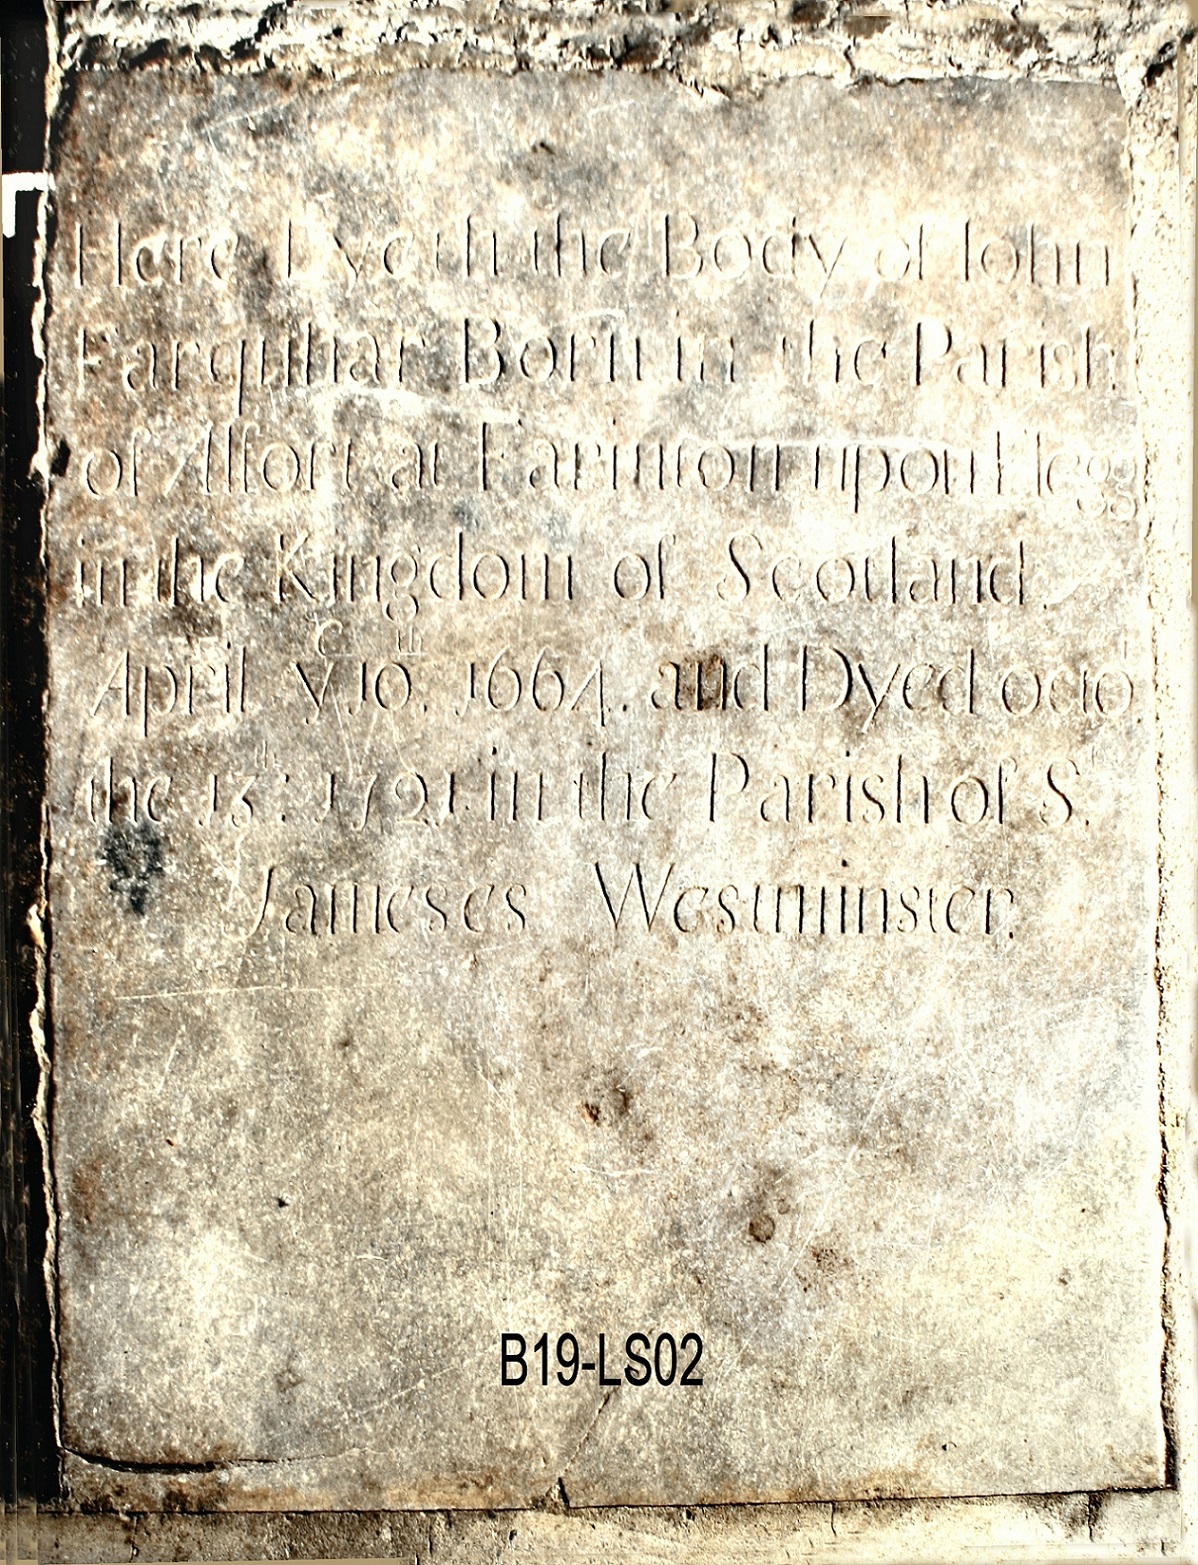 Here Lyeth the Body of Iohn
Farquhar Born in the Parish
of Alfort at Farinton upon Hegg
in the Kingdom of Scotland.
April yᵉ 10ᵗʰ. 1664. and Dyed octoᵇ.
the 13ᵗʰ: 1721 in the Parish of Sᵗ.
Jameses Westminster.
B19-LS02